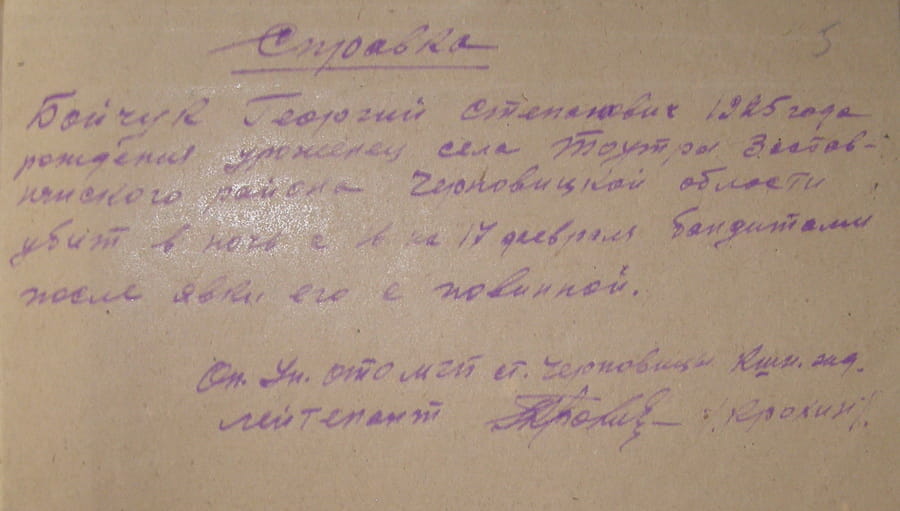 Справка
5
Бойчук Георгий Степанович 1925 года
рождения уроженец села Тоутры Застав-
нинского района Черновицкой области
убит в ночь с на 17 февраля бандитами
после явки его с повинной.
Оп. Уп. ОТО МГБ ст. Черновицы Кшн. жд.
лейтенант /Крохин/.